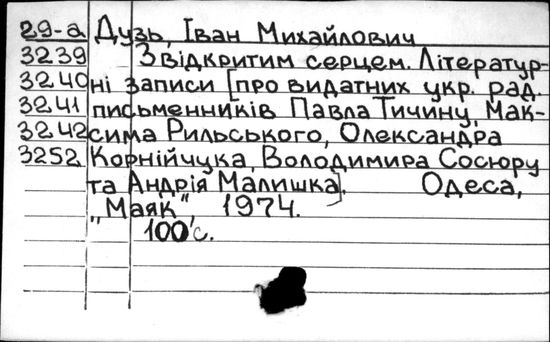 29-а Дузь, Іван Михайлович
3239 З відкритим серцем. Літератур-
3240 ні записи [про видатних укр. рад.
3241 письменників Павла Тичину, Мак-
3242 сима Рильського, Олександра
3252 Корнійчука, Володимира Сосюру
та Андрія Малишка]. Одеса,
„Маяк“, 1974.
100 с.